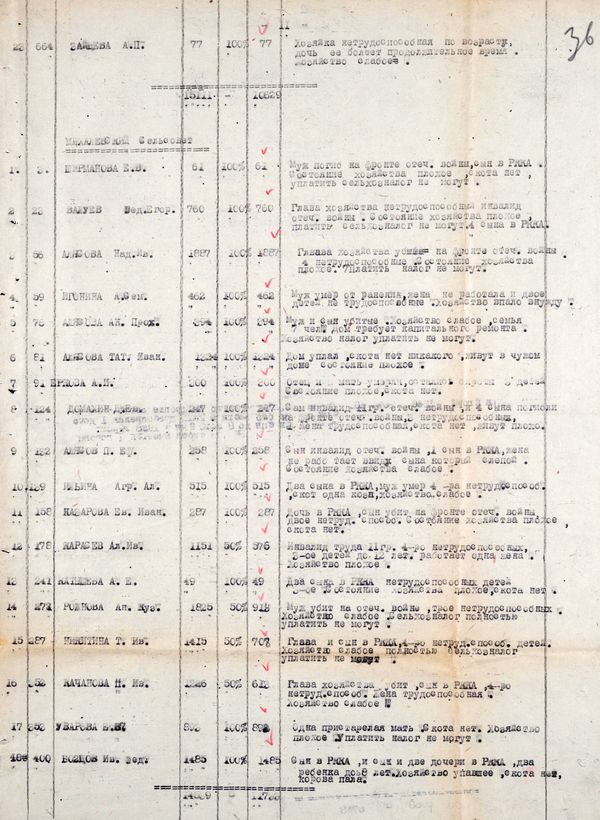 11
36
23 664 ЗАЙЦЕВА А.П. 77 100% 77 Хозяйка нетрудоспособная по возрасту,
дочь ее болеет продолжительное время .
Хозяйство слабое .
15111 - 10829
Михалевский Сельсовет
1. 3. ШИРМАНОВА Е.В. 61 100% 61 Муж погиб на фронте отеч. войны, сын в РККА .
Состояние хозяйства плохое , скота нет ,
уплатить сельхозналог не могут .
2 23 ВАЛУЕВ Фед.Егор. 760 100% 760 Глава хозяйства нетрудоспособный инвалид
отеч. войны . Состояние хозяйства плохое ,
платить сельхозналог не могут.4 сына в РККА.
3 55 Над.Ив. 1887 100% 1887 Глава хозяйства убит на фронте отеч. войны
4 нетрудоспособные Состояние хозяйства
плохое. Платить налог не могут.
4 59 ИГОНИНА А.Сем. 462 100% 462 Муж умер от ранения, жена не работала и двое
детей не трудоспособные . Хозяйство впало в нужду .
5 75 Ан. Прох. 294 100% 294 Муж и сын убитые . Хозяйство слабое , семья
7 чел. Дом требует капитального ремонта .
Хозяйство налог уплатить не могут.
6 81 Тат. Иван. 1224 100% 1224 Дом упал , скота нет никакого , живут в чужом
доме состояние плохое .
7 91 ЕРХОВА А.И. 200 100% 200 Отец и мать умерли, остались сироты 3 детей
Состояние плохое, скота нет.
8 124 247 100% 247 Сам инвалид II гр. отеч. войны , и 4 сына погибли
на фронте отеч. войны, 3 нетрудоспособных,
Жена трудоспособная, скота нет , живут плохо.
9 132 П. Еф. 258 100% 258 Сын инвалид отеч. войны , 1 сын в РККА, жена
не работает ввиду сына который слепой .
Состояние Хозяйства слабое .
10. 139 ИЛЬИНА Агр. Ал. 515 100% 515 Два сына в РККА, муж умер 4 -ра нетрудоспособ.
, скот одна коза, хозяйство слабое .
11 158 НАЗАРОВА Ев. Иван. 287 100% 287 Дочь в РККА , сын убит на фронте отеч. войны
двое нетруд. способ. Состояние хозяйства плохое ,
скота нет.
12 178 КАРАСЕВ Ал.Ив. 1151 50% 576 Инвалид труда II гр. 4-ро нетрудоспособных,
3-ое детей до 12 лет. работает одна жена .
Хозяйство плохое .
13 241 А. Е. 49 100% 49 Два сына в РККА нетрудоспособных детей
3-ое Состояние хозяйства плохое, скота нет .
14 272 РОДИОВА Ан. Куз. 1825 50% 913 Муж убит на отеч. войне , трое нетрудоспособных .
Хозяйство слабое Сельхозналог полностью
уплатить не могут .
15 287 НИКИТИНА Т. Ив. 1415 50% 707 Глава и сын в РККА, 4-ро нетруд.способ. детей.
Хозяйство слабое полностью Сельхозналог
уплатить не могут .
16 52 КАЧАНОВА П. Ив. 1226 50% 613 Глава хозяйства убит , сын в РККА , 4-ро
нетруд.способ. Жена трудоспособная .
Хозяйство слабое .
17 353 УВАРОВА 893 100% 893 Одна пристарелая мать Скота нет. Хозяйство
плохое Уплатить налог не могут .
400 Ив. Фед. 1485 100% 1485 Сын в РККА , и сын и две дочери в РККА , два
ребенка до 8 лет. Хозяйство упавшее , скота нет,
корова пала.